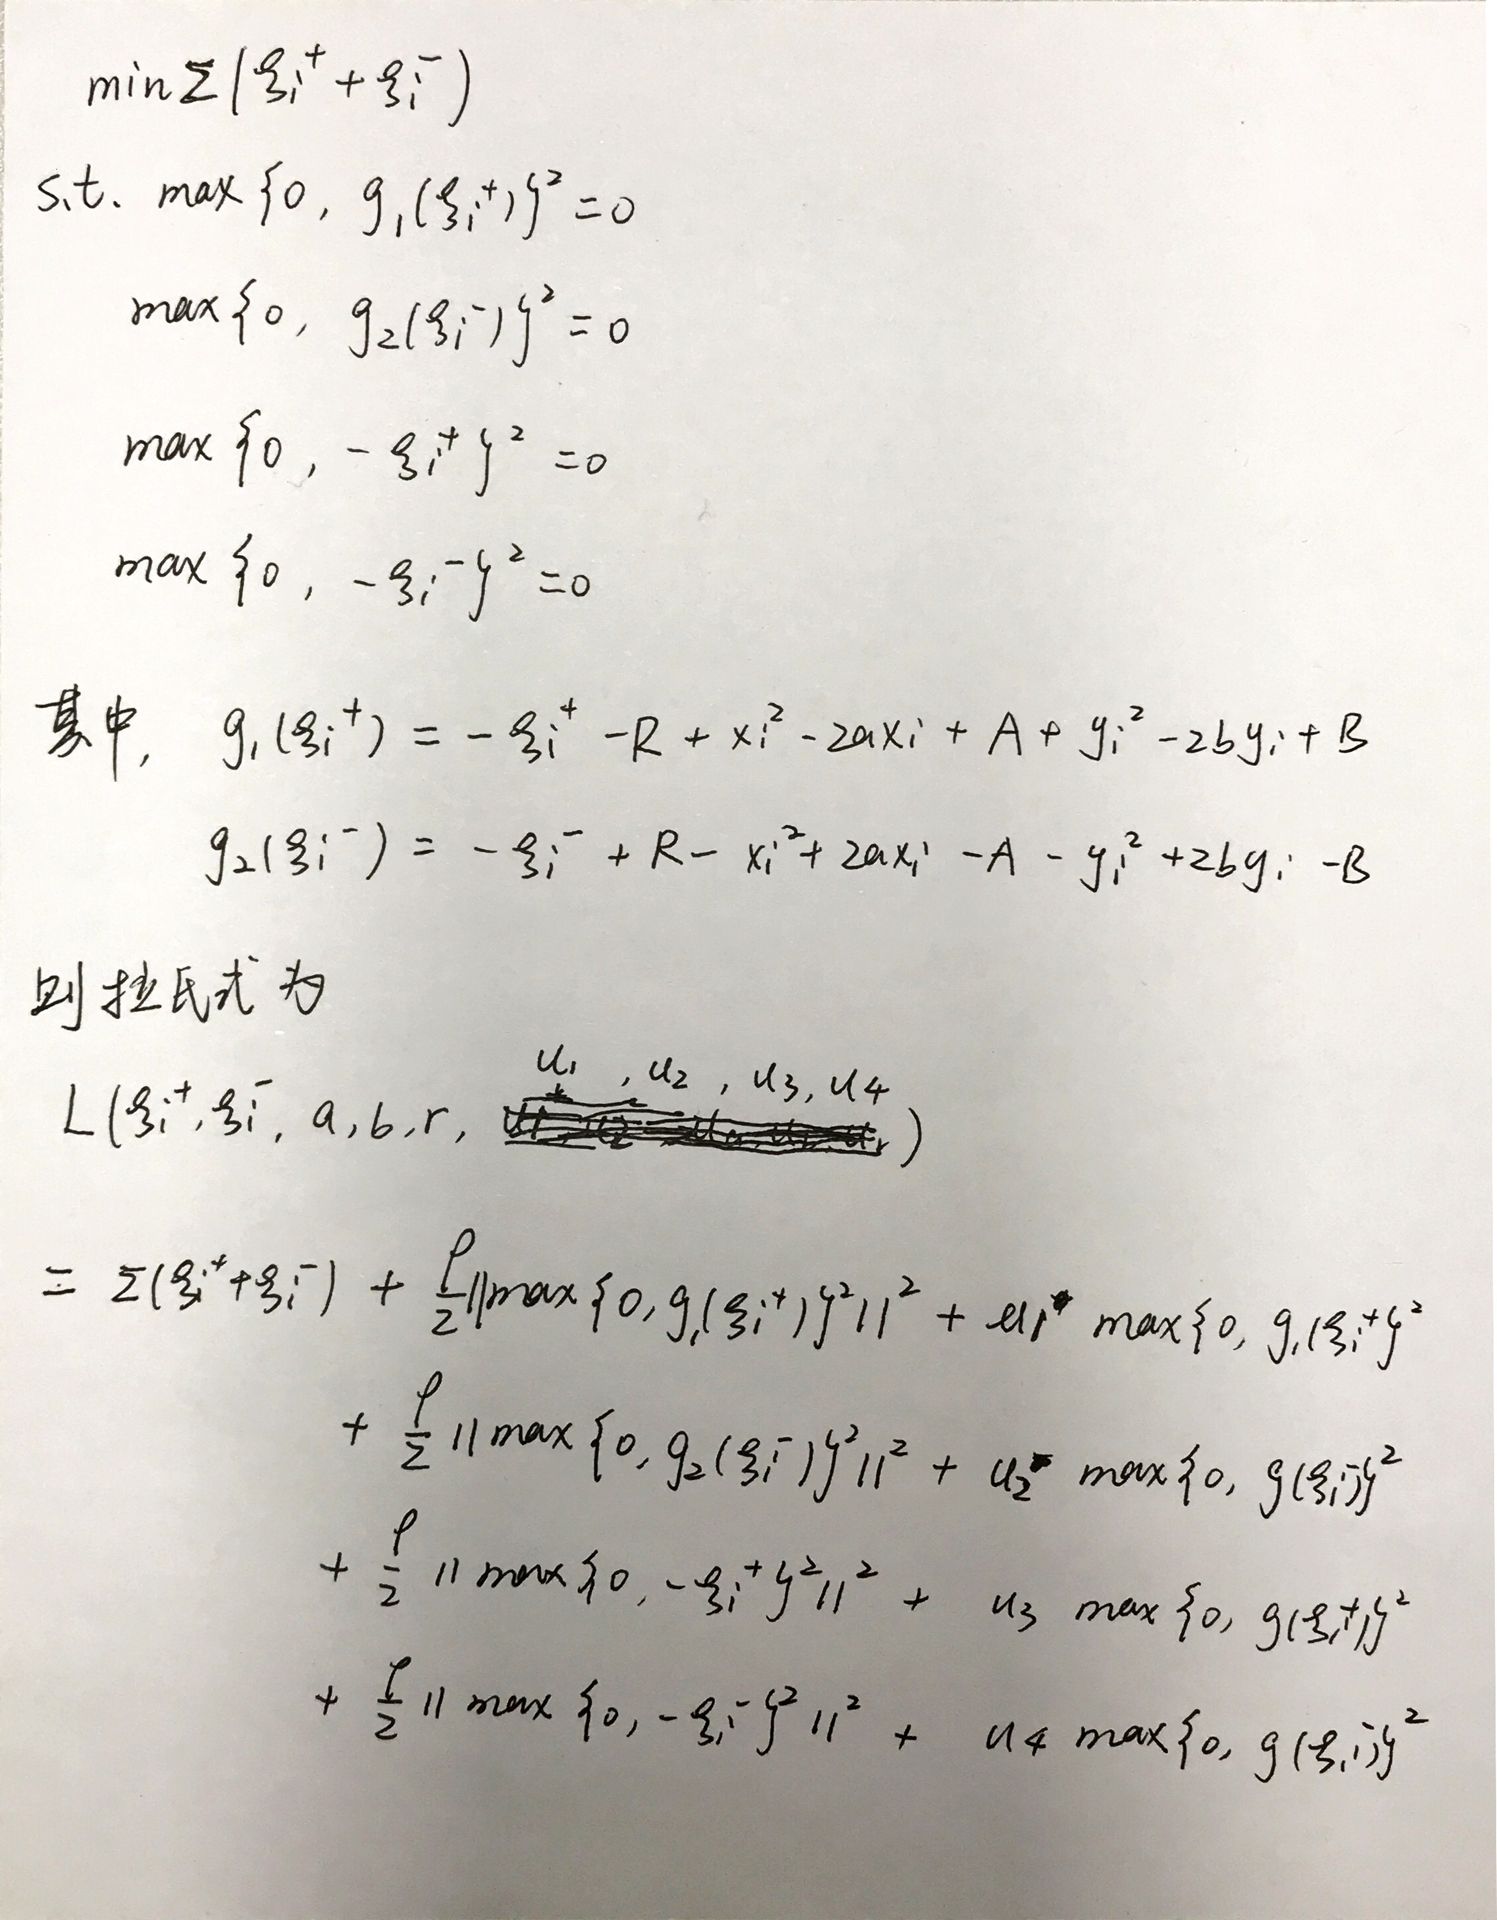 min Σ(ξi⁺ + ξi⁻)
s.t. max{0, g₁(ξi⁺)}² = 0
max{0, g₂(ξi⁻)}² = 0
max{0, -ξi⁺}² = 0
max{0, -ξi⁻}² = 0
其中, g₁(ξi⁺) = -ξi⁺ - R + xi² - 2axi + A + yi² - 2byi + B
g₂(ξi⁻) = -ξi⁻ + R - xi² + 2axi - A - yi² + 2byi - B
则拉氏式为
L(ξi⁺, ξi⁻, a, b, r, u₁, u₂, u₃, u₄)
= Σ(ξi⁺+ξi⁻) + ρ/2 ||max{0, g₁(ξi⁺)}²||² + u₁ max{0, g₁(ξi⁺}²
+ ρ/2 ||max{0, g₂(ξi⁻)}²||² + u₂ max{0, g(ξi⁻)}²
+ ρ/2 ||max{0, -ξi⁺}²||² + u₃ max{0, g(ξi⁺)}²
+ ρ/2 ||max{0, -ξi⁻}²||² + u₄ max{0, g(ξi⁻)}²